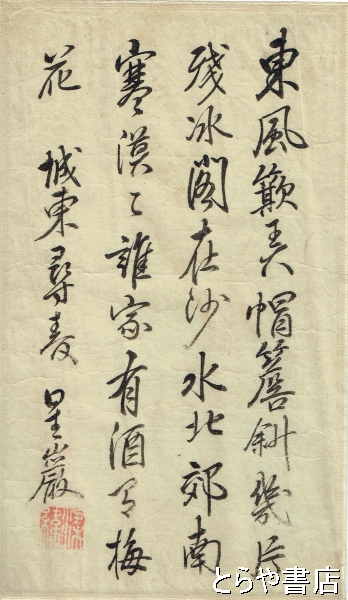 東風簸弄帽簷斜幾片
残冰閣在沙水北郊南
寒漠〻誰家有酒有梅
花　城東尋春　星巖
とらや書店